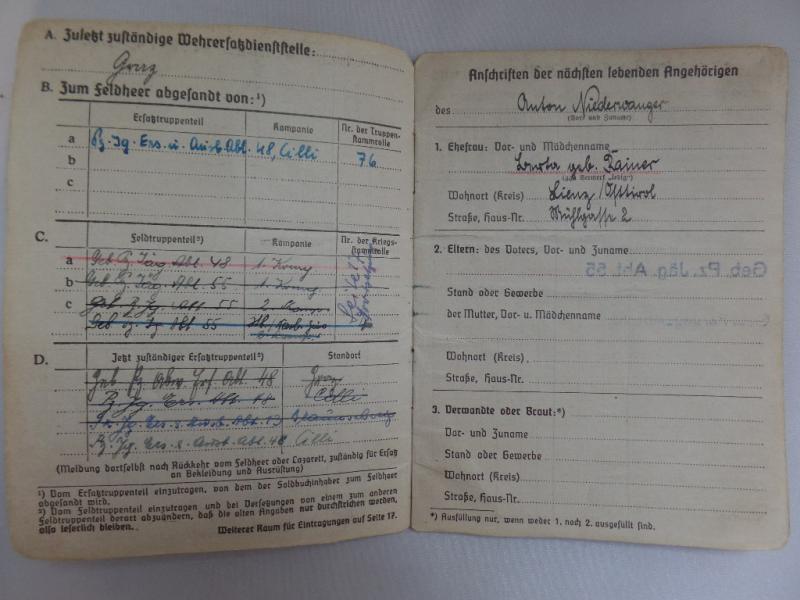 A. Zuletzt zuständige Wehrersatzdienststelle:
Graz
B. Zum Feldheer abgesandt von:¹)
Ersatztruppenteil Kompanie Nr. der Truppen-
stammrolle
a Pz. Jg. Ers. u. Ausb. Abt. 48, Cilli 76
b
c
C. Feldtruppenteil²) Kompanie Nr. der Kriegs-
stammrolle
a Geb. Pz. Jäg. Abt. 48 1. Komp
b Geb. Pz. Jäg. Abt. 55 1. Komp
c Geb. Pz. Jg. Abt. 55 2. Komp
Geb. Pz. Jg. Abt. 55
D. Jetzt zuständiger Ersatztruppenteil²) Standort
Geb. Pz. Abw. Ers. Abt. 48 Graz
Pz. Jg. Ers. Abt. 48 Cilli
Pz. Jg. Ers. u. Ausb. Abt.
Pz. Jg. Ers. u. Ausb. Abt. 48 Cilli
(Meldung dortselbst nach Rückkehr vom Feldheer oder Lazarett, zuständig für Ersatz
an Bekleidung und Ausrüstung)
¹) Vom Ersatztruppenteil einzutragen, von dem der Soldbuchinhaber zum Feldheer
abgesandt wird.
²) Vom Feldtruppenteil einzutragen und bei Versetzungen von einem zum anderen
Feldtruppenteil derart abzuändern, daß die alten Angaben nur durchstrichen werden,
also leserlich bleiben.
Weiterer Raum für Eintragungen auf Seite 17.
Anschriften der nächsten lebenden Angehörigen
des Anton Niederwanger
(Vor- und Zuname)
1. Ehefrau: Vor- und Mädchenname
geb. Rainer
(ggf. Vermerk „ledig")
Wohnort (Kreis) Lienz / Osttirol
Straße, Haus-Nr. Mühlgasse 2
2. Eltern: des Vaters, Vor- und Zuname
Geb. Pz. Jäg. Abt. 55
Stand oder Gewerbe
der Mutter, Vor- u. Mädchenname
Wohnort (Kreis)
Straße, Haus-Nr.
3. Verwandte oder Braut:*)
Vor- und Zuname
Stand oder Gewerbe
Wohnort (Kreis)
Straße, Haus-Nr.
*) Ausfüllung nur, wenn weder 1. noch 2. ausgefüllt sind.